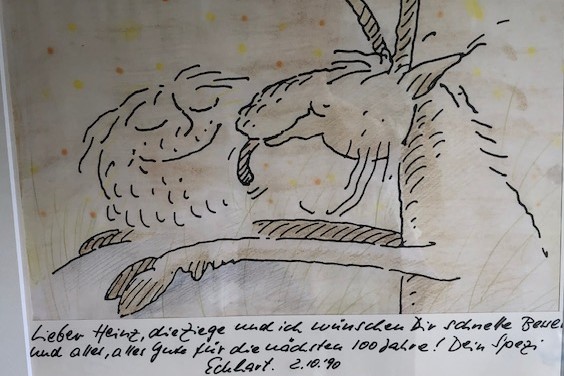 Lieber Heinz, die Ziege und ich wünschen Dir schnelle
und alles, alles Gute für die nächsten 100 Jahre! Dein Spezi
Eckhart. 2.10.'90